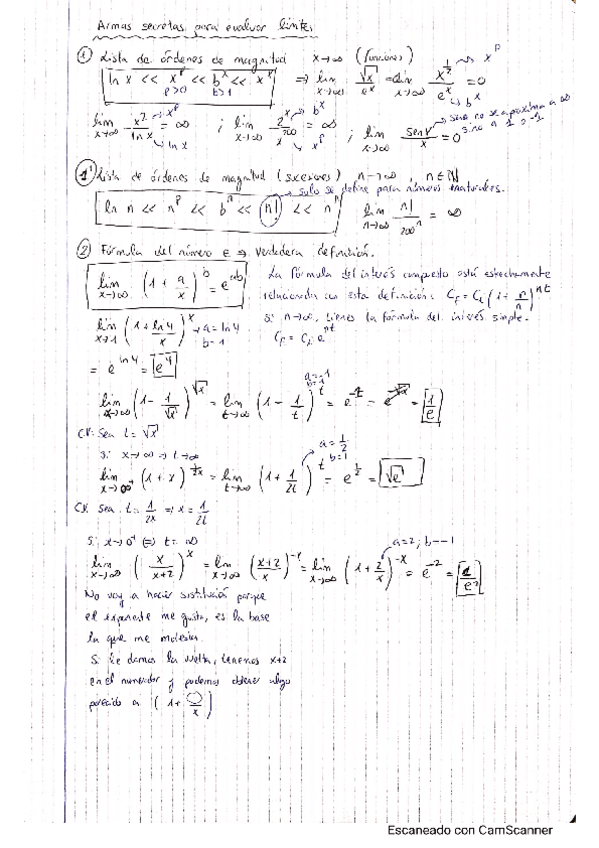 Armas secretas para evaluar límites
① Lista de órdenes de magnitud x→∞ (funciones)
ln x << x^p << b^x << x^x ⇒ lim x→∞ √x/e^x = lim x→∞ x^½/e^x = 0
p>0 b>1
→ x^p
↳ b^x
lim x→∞ x²/ln x = ∞ ; lim x→∞ 2^x/x^200 = ∞ ; lim x→∞ sen x/x = 0
①' Lista de órdenes de magnitud (sucesiones) n→∞, n∈ℕ
→ solo se define para números naturales.
ln n << n^p << b^n << n! << n^n
lim n→∞ n!/200^n = ∞
② Fórmula del número e ⇒ verdadera definición.
lim x→∞ (1 + a/x)^b = e^ab
La fórmula del interés compuesto está estrechamente
relacionada con esta definición:
si n→∞, tienes la fórmula del interés simple.
lim x→1 (1 + ln 4/x)^x → a = ln 4
b = 1
= e^ln 4 = e^4
a = -1
b = 1
lim x→∞ (1 - 1/√x)^√x = lim t→∞ (1 - 1/t)^t = e^-1 = 1/e
C.V: Sea t = √x
Si x→∞ ⇒ t→∞
a = 1/2
b = 1
lim (1 + x)^1/2x = lim t→∞ (1 + 1/2t)^t = e^½ = √e
C.V. Sea t = 1/2x ⇒ x = 1/2t
Si x→0⁺ ⇒ t = ∞
a = 2; b = -1
lim x→∞ (x/x+2)^x = lim x→∞ (x+2/x)^-x = lim x→∞ (1 + 2/x)^-x = e^-2 = 1/e²
No voy a hacer sustitución porque
el exponente me gusta, es la base
la que me molesta.
Si le damos la vuelta, tenemos x+2
en el numerador y podemos obtener algo
parecido a (1 + ◯/x)
Escaneado con CamScanner